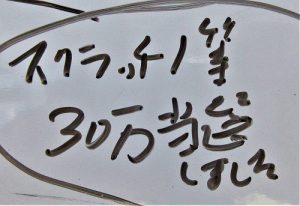 スクラッチ1等
30万当せん
しました